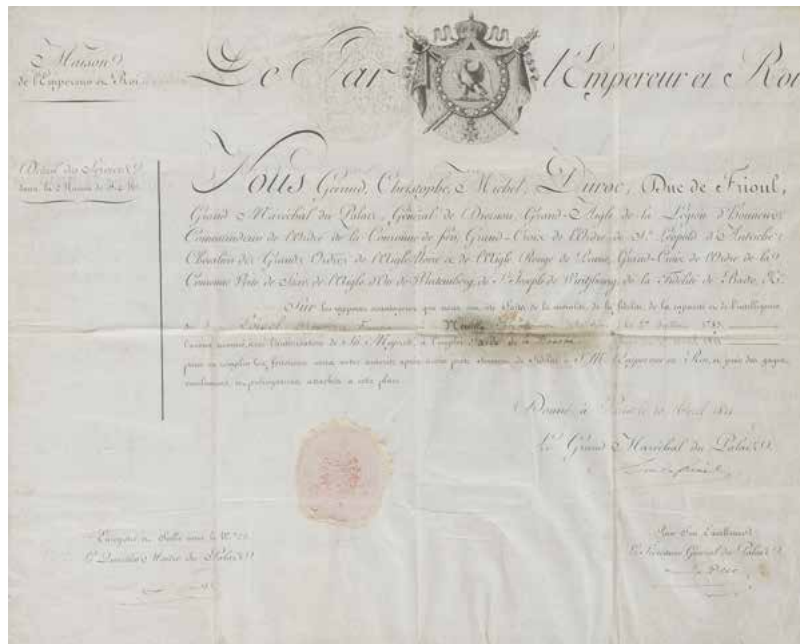 Maison
de l'Empereur et Roi
De Par l'Empereur et Roi
Détail des Services
dans la Maison de S. M.
Nous Géraud, Christophe, Michel, Duroc, Duc de Frioul,
Grand Maréchal du Palais, Général de Division, Grand-Aigle de la Légion d'Honneur,
Commandeur de l'Ordre de la Couronne de fer, Grand-Croix de l'Ordre de St. Léopold d'Autriche,
Chevalier des Grands Ordres de l'Aigle Noire et de l'Aigle Rouge de Prusse, Grand-Croix de l'Ordre de la
Couronne Verte de Saxe, de l'Aigle d'Or de Wurtemberg, de St. Joseph de Wurtzbourg, de la Fidélité de Bade, &.
Sur les rapports avantageux qui nous ont été faits de la moralité, de la fidélité, de la capacité et de l'intelligence
du Neuilly 1785
l'avons nommé, avec l'autorisation de Sa Majesté, à l'emploi
pour en remplir les fonctions sous notre autorité après avoir prêté serment de fidélité à S. M. l'Empereur et Roi, et jouir des gages,
émolumens, et prérogatives attachés à cette place.
Donné à Paris le Avril 1811
Le Grand Maréchal du Palais
Enregistré
Le Quartier Maître du Palais
Par Son Excellence
Le Secrétaire Général du Palais